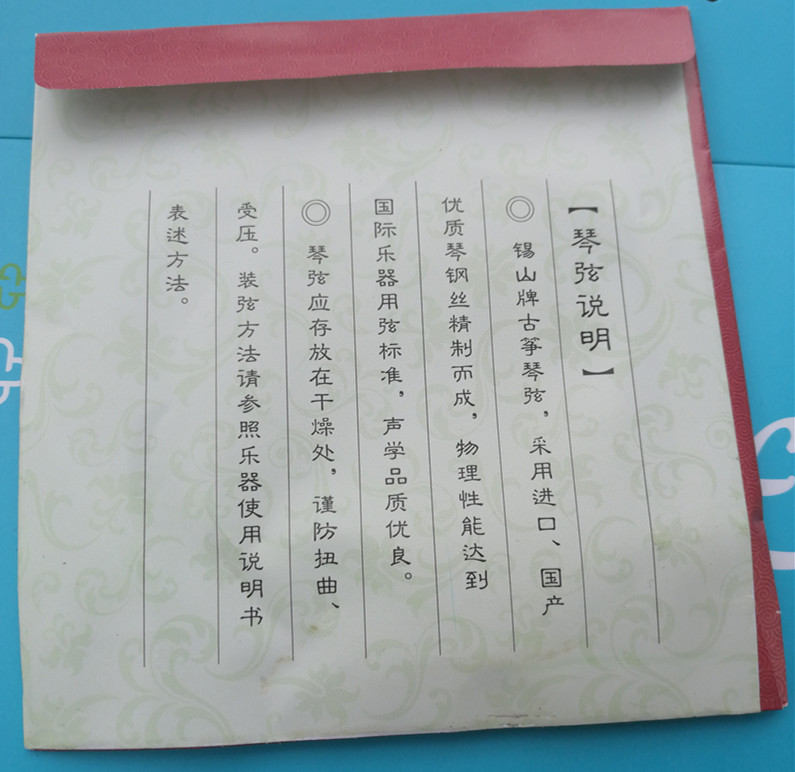 【琴弦说明】
◎ 锡山牌古筝琴弦，采用进口、国产
优质琴钢丝精制而成，物理性能达到
国际乐器用弦标准，声学品质优良。
◎ 琴弦应存放在干燥处，谨防扭曲、
受压。装弦方法请参照乐器使用说明书
表述方法。